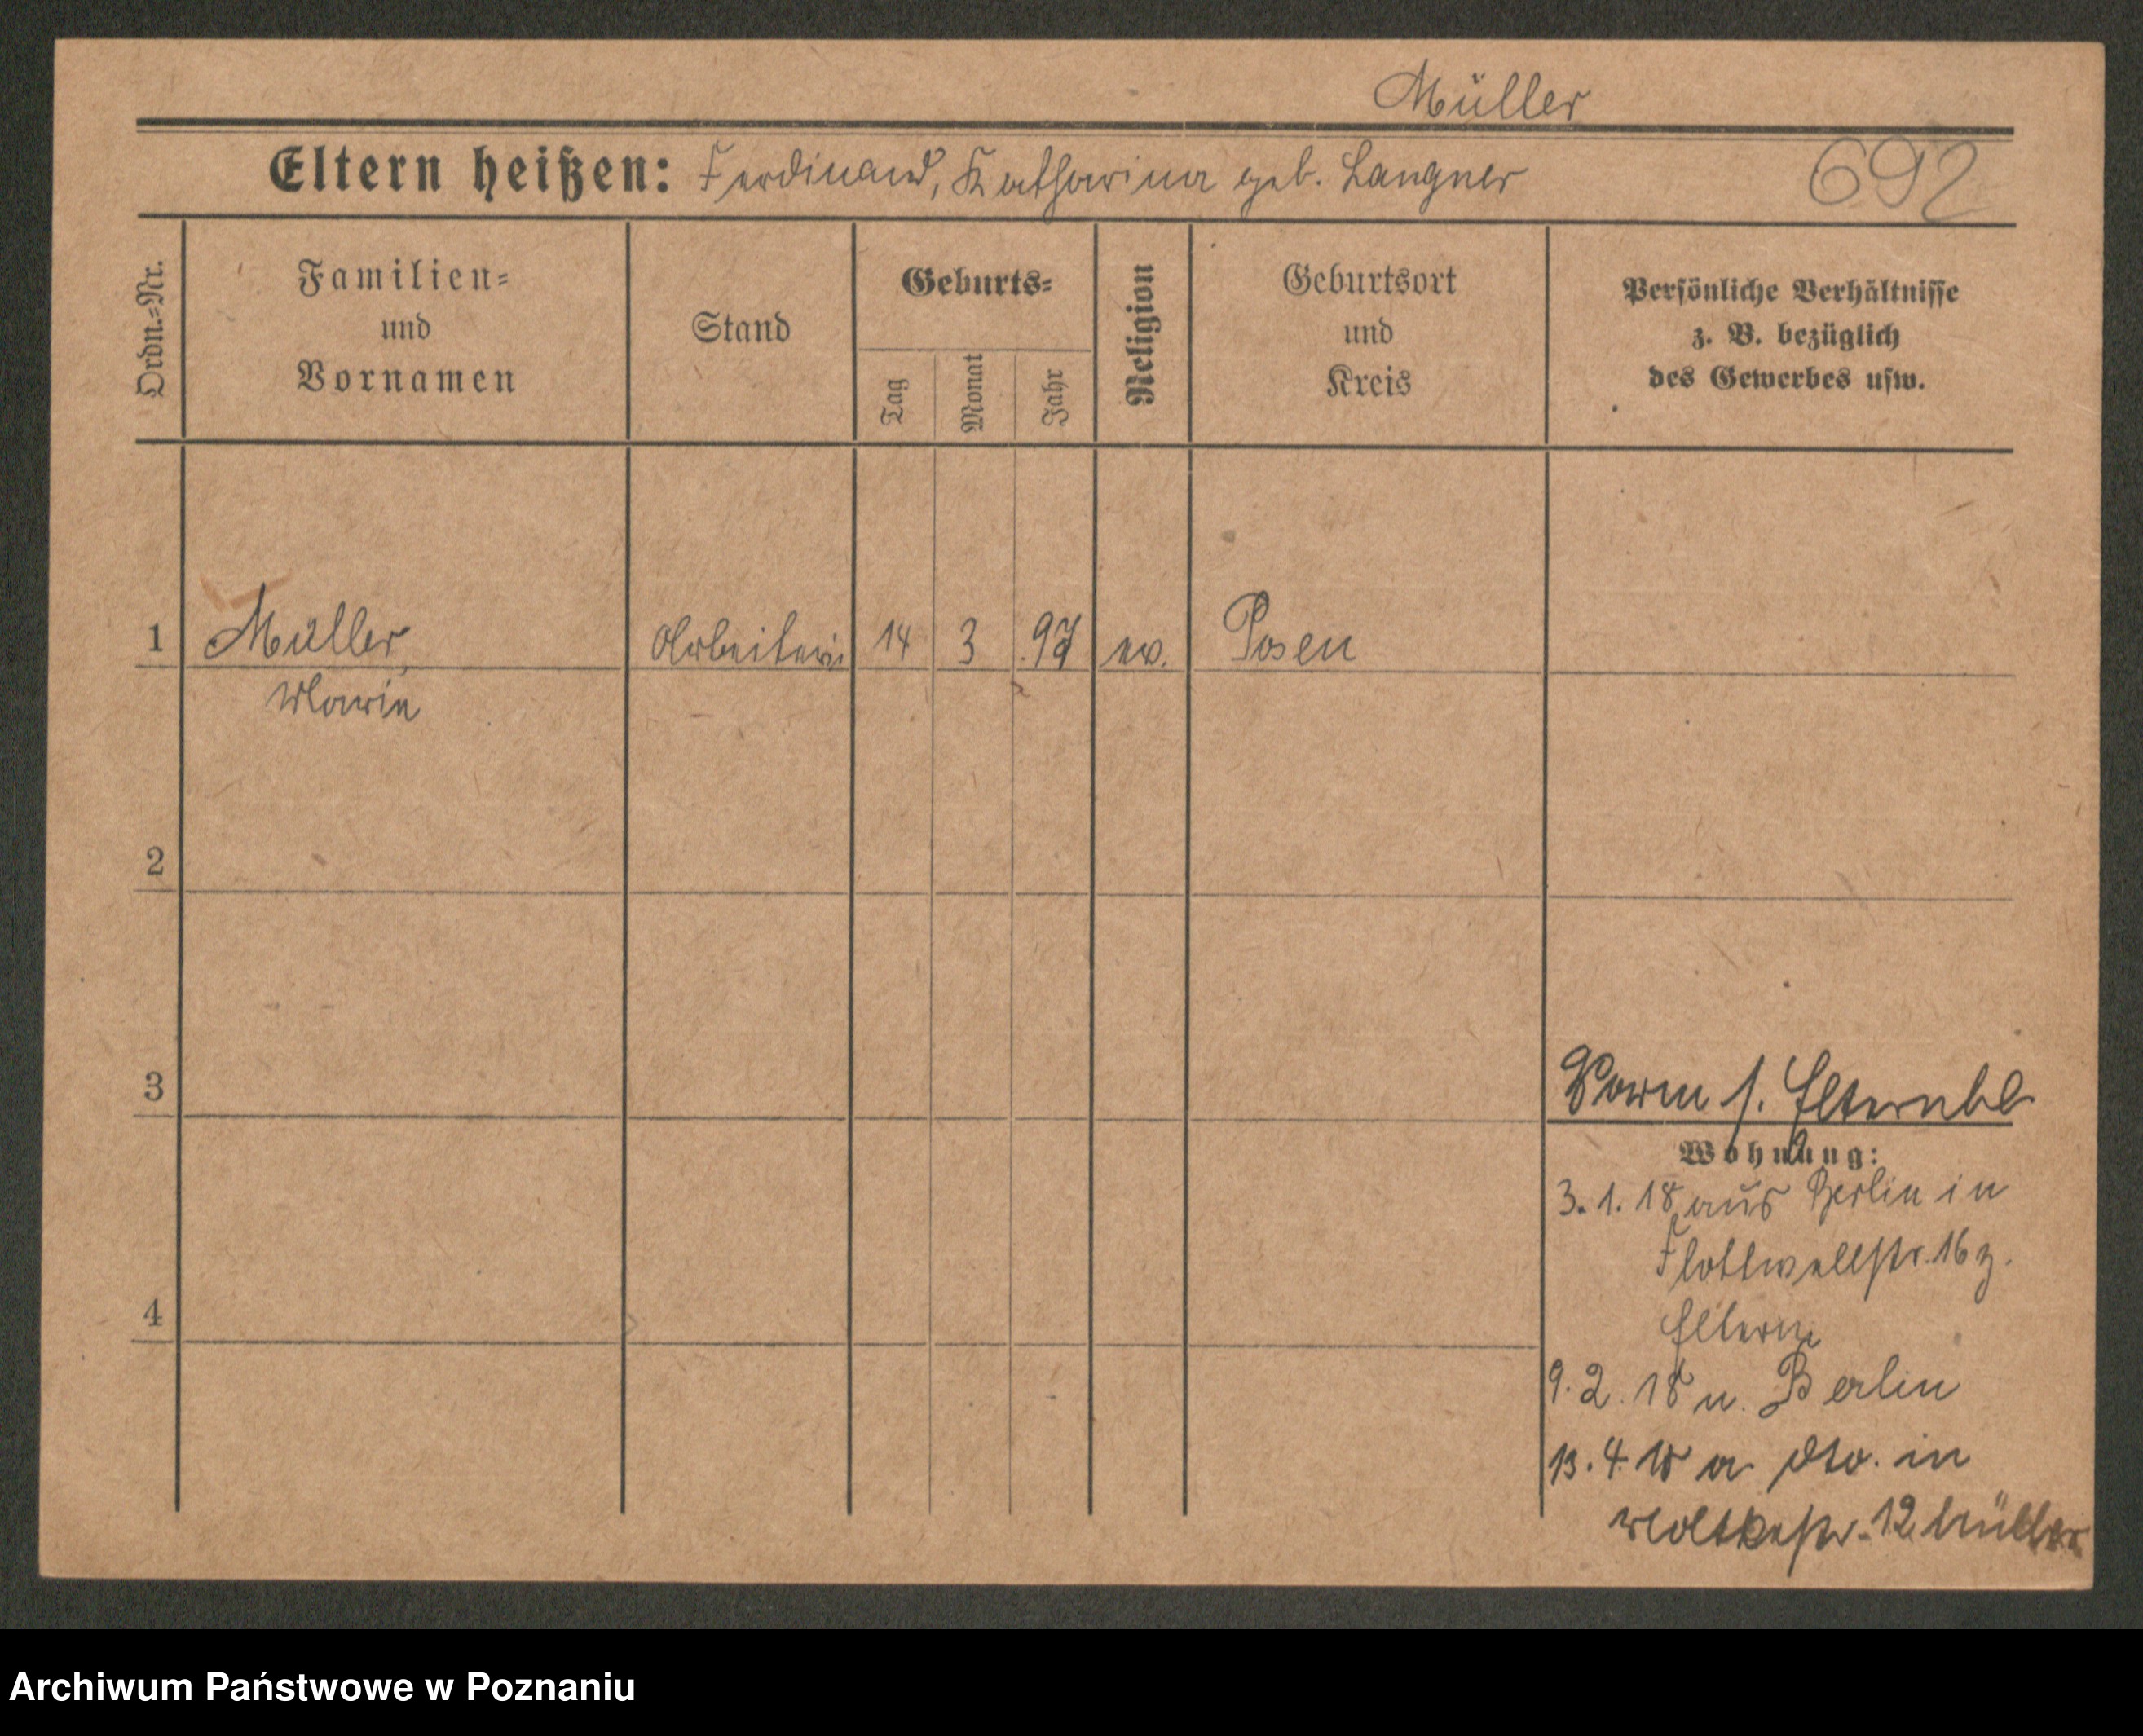 Müller
Eltern heißen: Ferdinand, Katharina geb. Langner
692
Ordn.=Nr.
Familien=
und
Vornamen
Stand
Geburts=
Tag
Monat
Jahr
Religion
Geburtsort
und
Kreis
Persönliche Verhältnisse
z. B. bezüglich
des Gewerbes usw.
1 Müller, Arbeiterin 14 3 .97 ev. Posen
Marie
2
3
Vorm s. Elternbl
Wohnung:
3. 1. 18 aus Berlin in
Flottwellstr. 16 z.
Eltern
4
9. 2. 18 n. Berlin
13. 4. 18 a dto. in
Moltkestr. 12 Müller
Archiwum Państwowe w Poznaniu